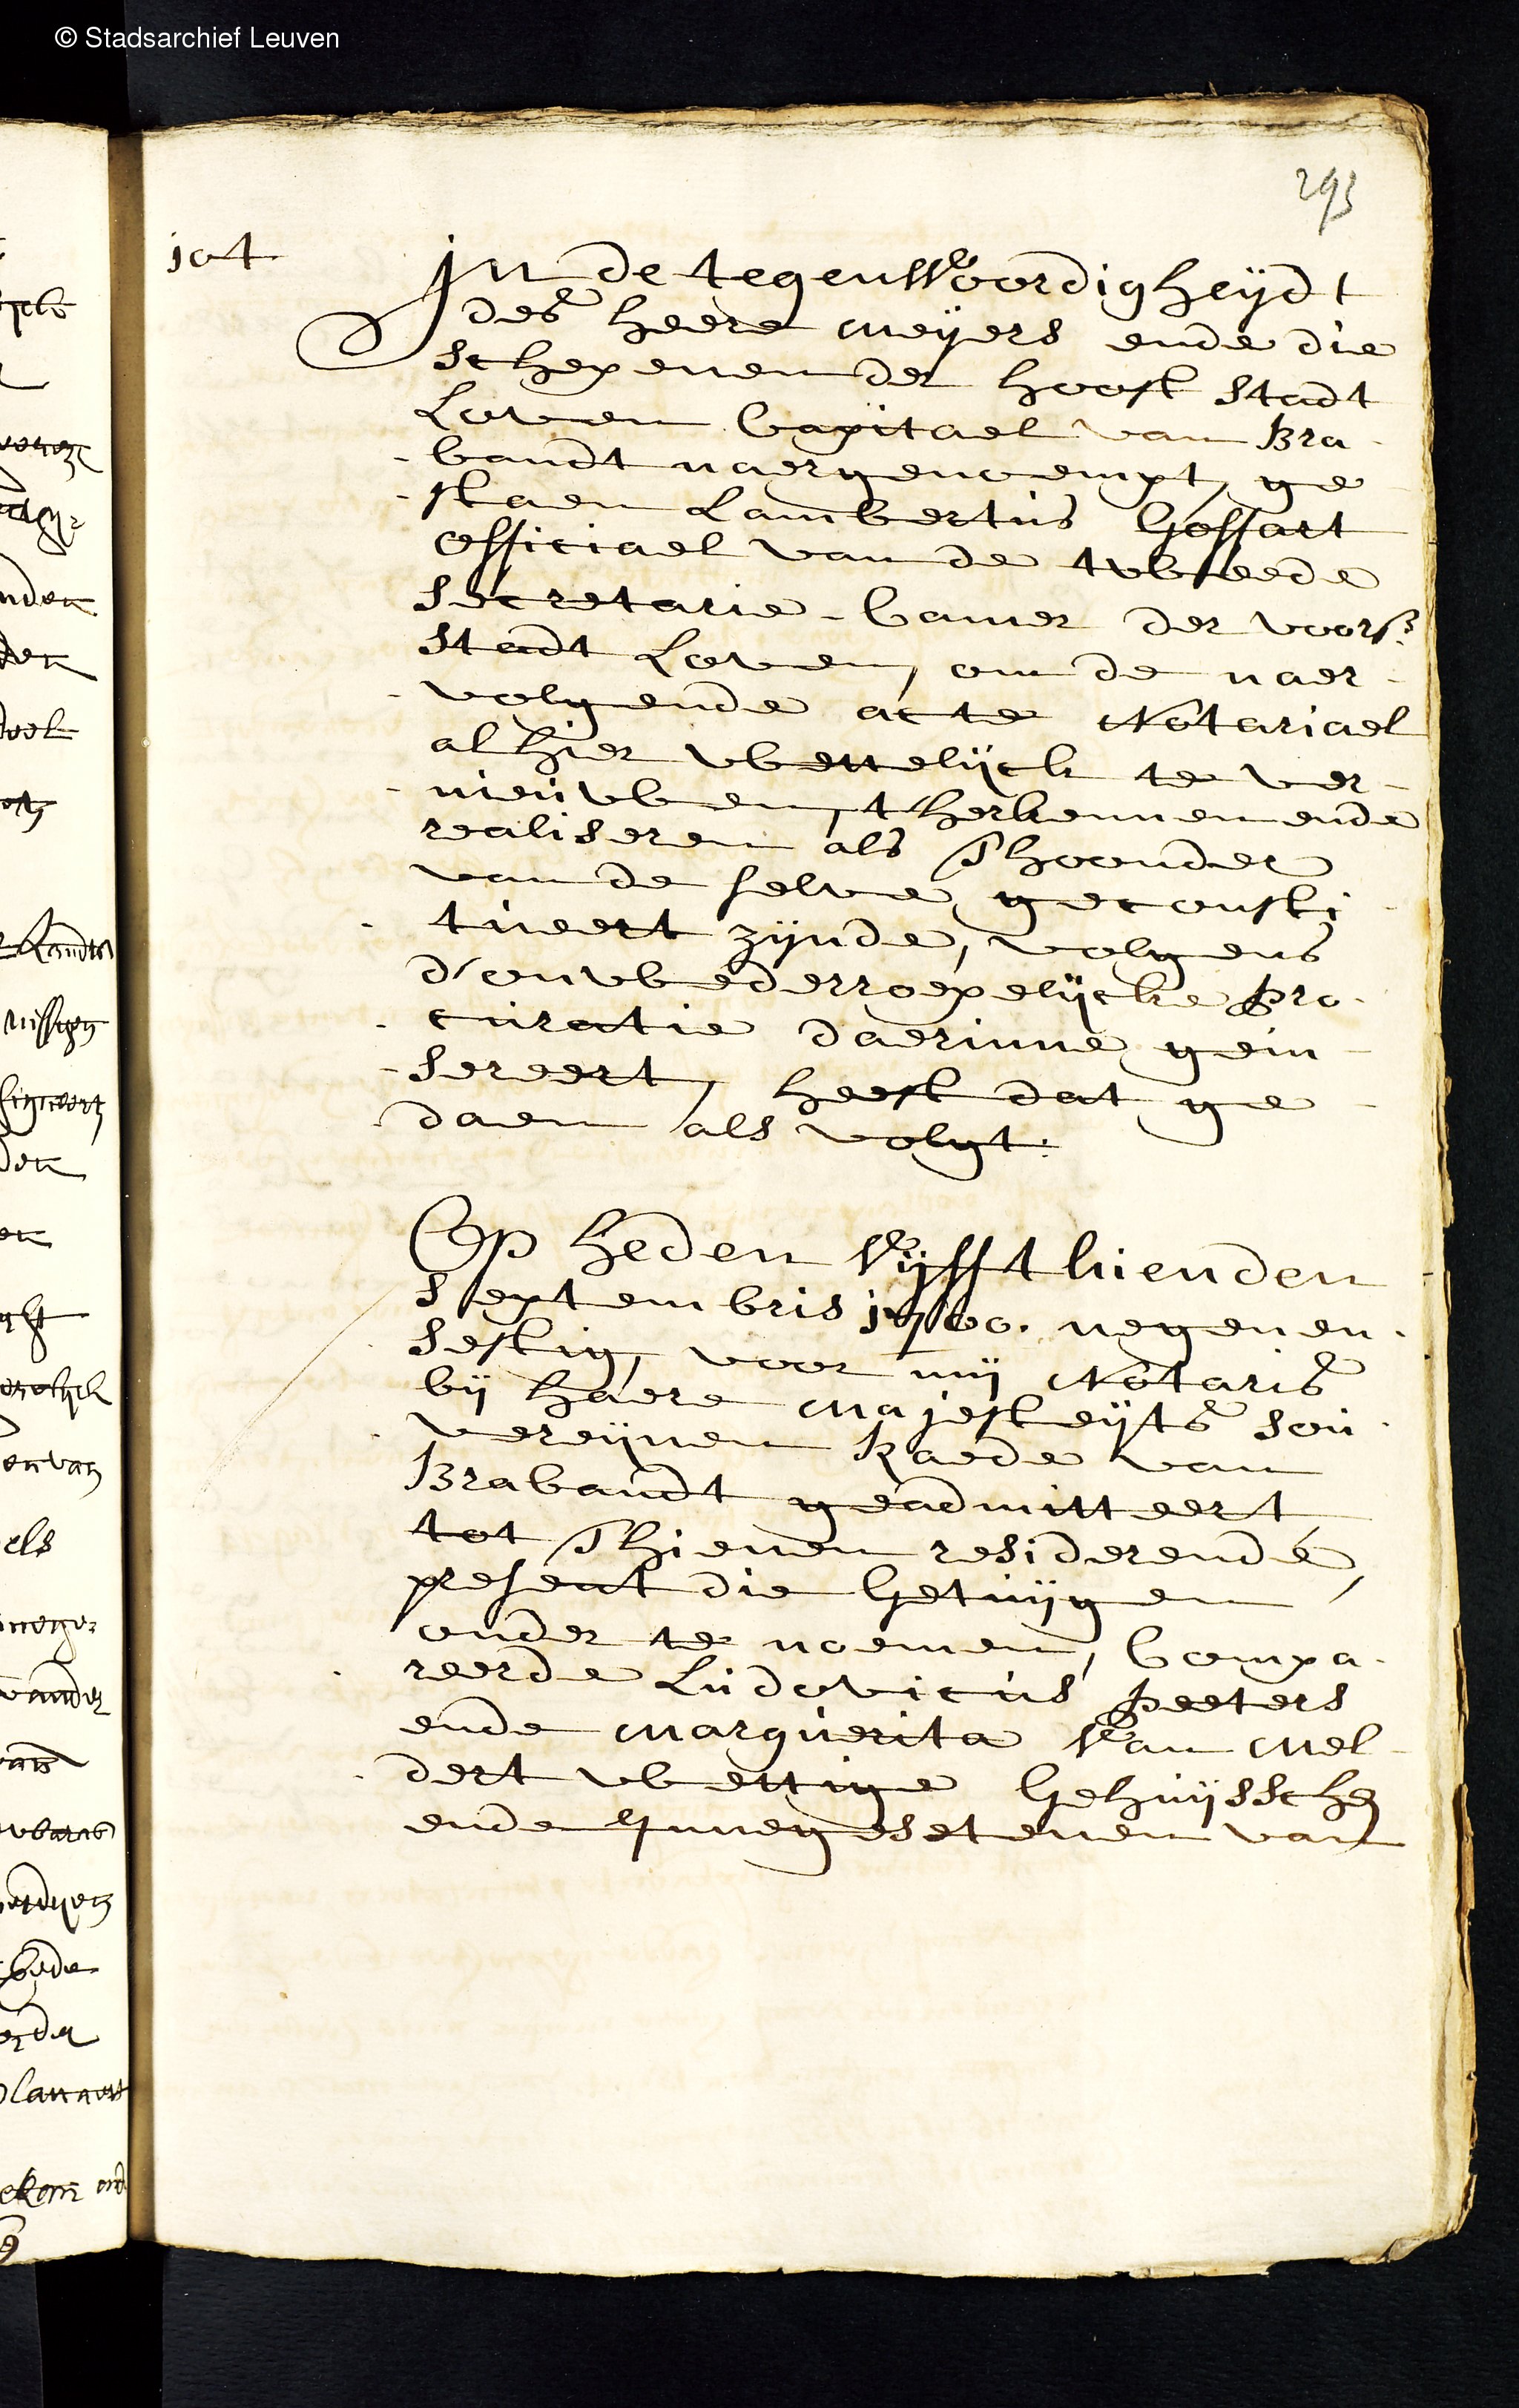 © Stadsarchief Leuven
293
104
In de tegenWoordigheijdt
des heere meijers ende die
schepenen der hooft stadt
Loven Capitael van Bra
bandt naergenoempt, ge
staen Lambertus Goffart
officiael van de tweede
secretarie-Camer der voors.
stadt Loven, om de naer
volgende acte Notariael
alhier wettelijck te ver
nieuwen, t herkennen ende
realiseren als Thoonder
van de selve geconsti
tueert zijnde, volgens
d'onwederroepelijcke pro
curatie daerinne gein
sereert, heeft dat ge
daen als volgt:
Op heden Vijffthienden
septembris 1700. negenen
sestig, voor mij Notaris
bij haere Majesteijts sou
vereijnen Raede van
Brabandt geadmitteert
tot Thienen residerende,
present die Getuijgen
onder te noemen, Compa
reerde Ludovicus peeters
ende Marguerita Van Mel
dert wettige Gehuijsschen
ende Innegesetenen van